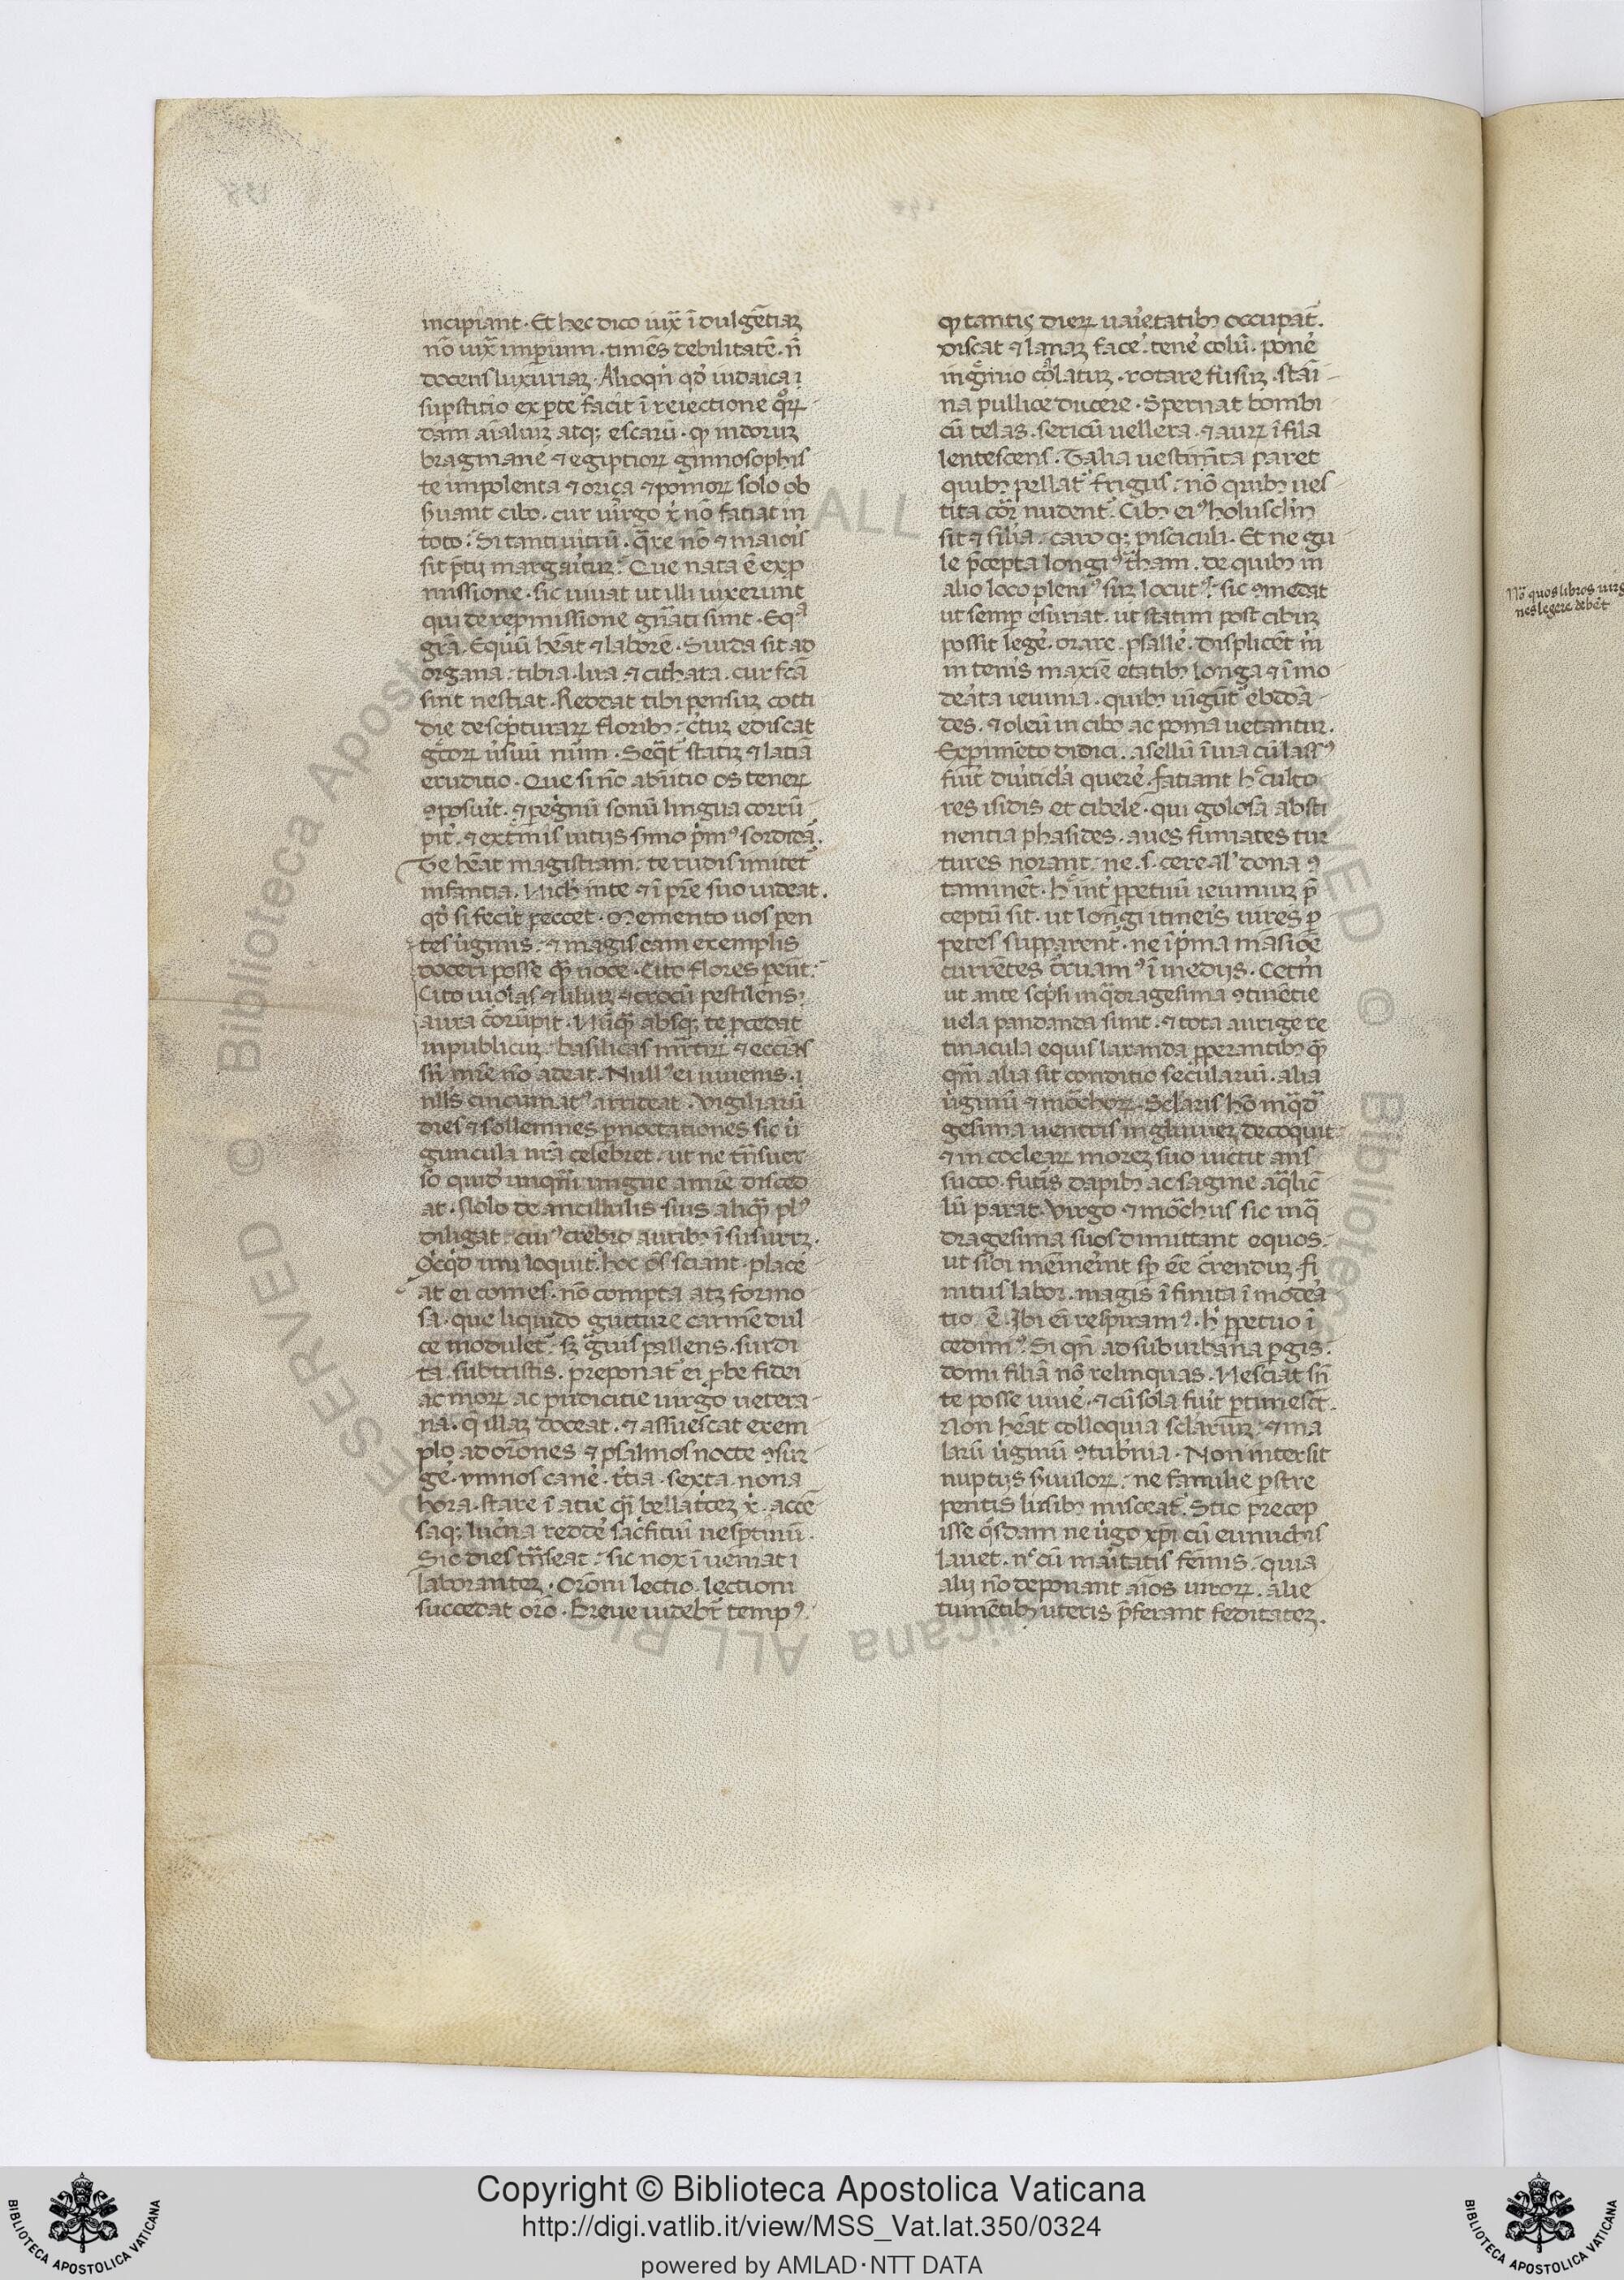 incipiant. Et hec dico iux̄ īdulgētiaꝫ
nō iux̄ imperium. timēs debilitatē. n̄
docens luxuriaꝫ. Alioqn̄ qd̓ iudaica
supstitio ex parte facit ī reiectione q̊rꝝ
dam aīaliuꝫ atqꝫ escarū. ꝙ indoruꝫ
bragmane ⁊ egiptioꝝ gimnosophis
te in polenta ⁊ oriça ⁊ pomoꝝ solo ob
ẜuant cibo. cur uirgo x̓ nō fatiat in
toto. Si tanti uitrū. q̄re nō ⁊ maioris
sit p̄tij margaituꝫ. Que nata ē ex rep
missione. sic uiuat ut illi uixerunt
qui de repmissione gn̄ati sunt. Eqᵃ
gr̄a. Equū hēat ⁊ laborē. Surda sit ad
organa. tibia. lira ⁊ cithara. cur fc̄a
sint nesciat. Reddat tibi pensuꝫ cotti
die de scpturaꝝ floribꝫ. c̄tuꝫ ediscat
g̊toꝝ u̓suū num̄. Seqt̄ statiꝫ ⁊ latiā
eruditio. Que si nō ab initio os teneꝝ
ꝯposuit. ⁊ pegnū sonū lingua corrū
pit. ⁊ ext̓nis uitijs s̓mo p̄mꝰ sordidat̄.
Te hēat magistram. te rudis mitet̄
infantia. Nich̓ in te ⁊ ī pr̄e suo uideat.
qd̓ si fecit peccet. Memento uos pen
tes u̓ginis. ⁊ magis eam exemplis
doceri posse qꝫ uoce. Cito flores peūt.
Cito uiolas ⁊ liliuꝫ ⁊ crocū pestilens
aura corūpit. Nūqꝫ absqꝫ te pcedat
in publicuꝫ. basilicas mr̄tirꝝ ⁊ eccīas
sn̄ mr̄e nō adeat. Nullꝰ ei iuuenis.
nllꝰs cincinnatꝰ arrideat. Vigiliarū
dies ⁊ sollemnes pnoctationes sic u̓
guncula nr̄a celebret. ut ne tn̄suer
so quid̓ unqꝫ ungue a mr̄e disced
at. Nolo de ancillulis suis aliqꝫ plꝰ
diligat. cuiꝰ crebro auribꝫ īsusurrꝫ.
Qcqd̓ uni loquit̄ hoc ōs sciant. place
at ei comes. nō compta atꝫ formo
sa. que liquido gutture carmē dul
ce modulet̄. sꝫ g̓uis pallens. surdi
ta. subtristis. preponat̄ ei pbe fidei
ac moꝝ ac pudicitie uirgo uetera
na. q̄ illaꝫ doceat. ⁊ assuescat exem
plo ad orōnes ⁊ psalmos nocte ꝯsur
ge̓. ymnos cane̓. t̓cia. sexta. nona
hora. stare ī acie qͣ bellat̓cez x̓. accē
saqꝫ luc̓na redde̓ sac̓ficiū uesptinū.
Sic dies tn̄seat. sic nox īueniat
laboranteꝫ. Orōni lectio. lectioni
succedat orō. Breue uidebr̄ tempꝰ
ꝙ tantis dieꝝ uarietatibꝫ occupat̄.
Discat ⁊ lanaꝫ face̓. tene̓ colū. pone̓
in g̓mio c̓olatuꝫ. rotare fusuꝫ. stam̄
na pullice ducere. Spernat bombi
cū telas. sericū uellera. ⁊ auꝝ ī fila
lentescens. Talia uestim̄ta paret
quibꝫ pellat̄ frigus. nō quibꝫ ues
tita cōr nudent̄. Cibꝫ eiꝰ holusclm̄
sit ⁊ silia. caro qꝫ pisciculi. Et ne gu
le p̄cepta longiꝰ t̓ham. de quibꝫ in
alio loco pleniꝰ suꝫ locutꝰ. sic ꝯmedat
ut semp esuriat. ut statim post cibuꝫ
possit lege̓. orare. psalle̓. Displicēt m̓
in tenis maxīe etatibꝫ longa ⁊ īmo
deata ieiunia. quibꝫ iūgūt̄ ebdōa
des. ⁊ oleū in cibo ac poma uetantur.
Expimēto didici. asellū ī uia cū lassꝰ
fuit diuticla quere̓. fatiant h̓ culto
res isidis et cibele. qui golosa absti
nentia phasides. aues fumātes tur
tures uorant. ne. s. cereal̓ dona ꝯ
taminēt. h̓ int̓ ppetuū ieiuniuꝫ p̄
ceptū sit. ut longi itineis uires p
petes supparent̄. ne ī pma māsiōe
currētes c̓ruamꝰ ī medijs. Cetm̄
ut ante scpsi in qͣdragesima ꝯtinētie
uela pandanda sunt. ⁊ tota aurige re
tinacula equis laxanda pperantibꝫ qꝫ
qm̄ alia sit conditio seculariū. alia
u̓ginū ⁊ mōchoꝝ. Sclaris hō in qͣd̄
gesima uentris ingluuieꝫ decoquit
⁊ in coclearꝫ moreꝫ suo uictit ans
succo. futis dapibꝫ ac sagine aqͣlic̄
lū parat. Virgo ⁊ mōchus sic in qͣ
dragesima suos dimittant equos.
ut sibi memēint sp ēe c̓rendūꝫ. fi
nitus labor. magis ī finita īmodea
tio ē. Ibi eī respiramꝰ. h̓ ppetuo ī
cedimꝰ. Si qn̄ ad suburbana pgis.
domi filiā nō relinquas. Nesciat sn̄
te posse uiue̓. ⁊ cū sola fuit ptimesc̄t.
Non hēat colloquia sclariuꝫ. ⁊ ma
larū u̓ginū ꝯtub̓nia. Non intersit
nuptijs ẜuuloꝝ. ne familie pstre
pentis lusibꝫ misceat̄. Scio precep
isse q̓sdam ne u̓go xp̄i cū eunuchis
lauet. nᶜ cū maitatis femīs. quia
alij nō deponant aīos uiroꝝ. alie
tumētibꝫ uteris p̄ferant feditateꝫ.
Nō quos libros uirg
nes legere debēt
Copyright © Biblioteca Apostolica Vaticana
http://digi.vatlib.it/view/MSS_Vat.lat.350/0324
powered by AMLAD·NTT DATA
BIBLIOTECA APOSTOLICA VATICANA
BIBLIOTECA APOSTOLICA VATICANA